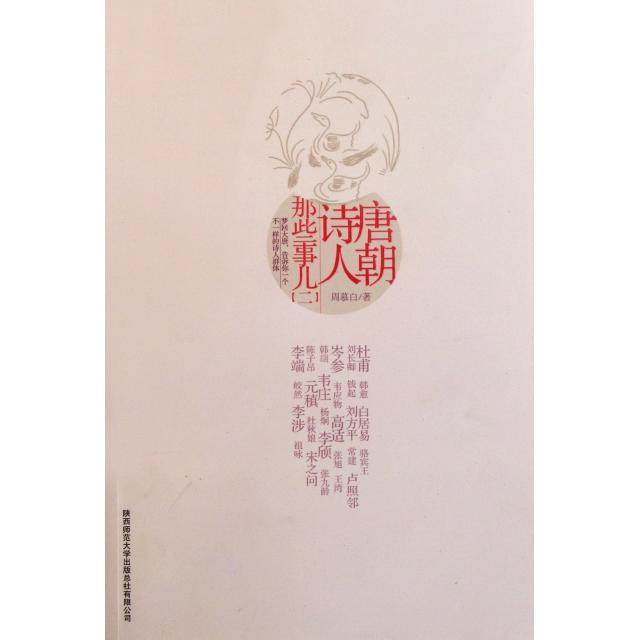 唐朝
诗人
那些事儿【二】
梦回大唐，告诉你一个
不一样的诗人群体
周慕白/著
杜甫 韩愈 白居易 骆宾王
刘长卿 钱起 刘方平 常建 卢照邻
岑参 韦应物 高适 张旭 王湾
韩翃 韦庄 杨炯 李颀 张九龄
陈子昂 元稹 杜秋娘 宋之问
李端 皎然 李涉 祖咏
陕西师范大学出版总社有限公司